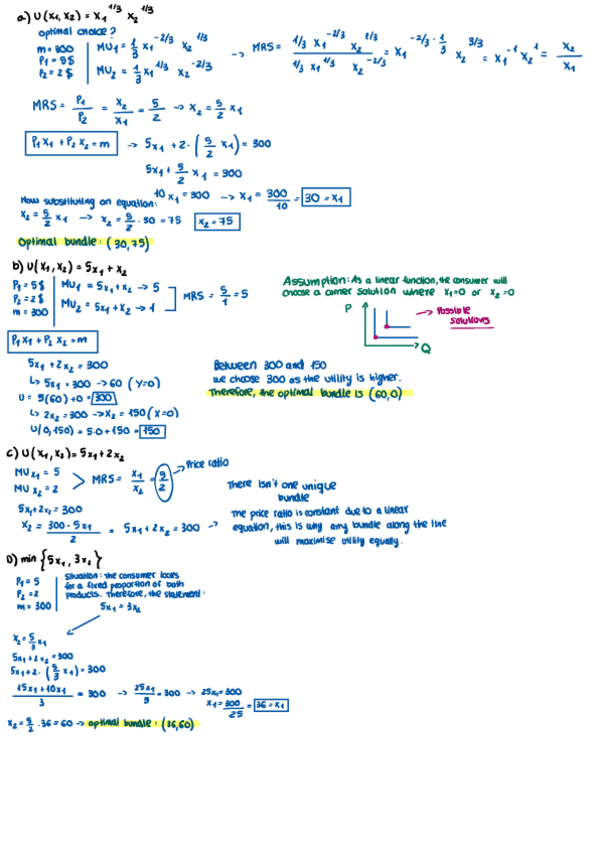 a) U(x₁, x₂) = x₁^1/3 x₂^1/3
optimal choice?
m = 300
P₁ = 5$
P₂ = 2$
MU₁ = 1/3 x₁^-2/3 x₂^1/3
MU₂ = 1/3 x₁^1/3 x₂^-2/3
→ MRS = (1/3 x₁^-2/3 x₂^1/3)/(1/3 x₁^1/3 x₂^-2/3) = x₁^-2/3-1/3 x₂^3/3 = x₁^-1 x₂^1 = x₂/x₁
MRS = P₁/P₂ = x₂/x₁ = 5/2 → x₂ = 5/2 x₁
P₁x₁ + P₂x₂ = m → 5x₁ + 2·(5/2 x₁) = 300
5x₁ + 5/2 x₁ = 300
10x₁ = 300 → x₁ = 300/10 = 30 = x₁
Now substituting on equation:
x₂ = 5/2 x₁ → x₂ = 5/2 · 30 = 75 x₂ = 75
Optimal bundle: (30,75)
b) U(x₁, x₂) = 5x₁ + x₂
P₁ = 5$
P₂ = 2$
m = 300
MU₁ = 5x₁ + x₂ → 5
MU₂ = 5x₁ + x₂ → 1
MRS = 5/1 = 5
Assumption: As a linear function, the consumer will
choose a corner solution where x₁=0 or x₂=0
P
Q
→ Possible
solutions
P₁x₁ + P₂x₂ = m
5x₁ + 2x₂ = 300
↳ 5x₁ = 300 → 60 (y=0)
U = 5(60) + 0 = 300
↳ 2x₂ = 300 → x₂ = 150 (x=0)
U(0,150) = 5·0 + 150 = 150
Between 300 and 150
we choose 300 as the utility is higher.
Therefore, the optimal bundle is (60,0)
c) U(x₁, x₂) = 5x₁ + 2x₂
MUx₁ = 5
MUx₂ = 2
MRS = x₁/x₂ = 5/2 → Price ratio
5x₁ + 2x₂ = 300
x₂ = (300 - 5x₁)/2 = 5x₁ + 2x₂ = 300 →
There isn't one unique
bundle
The price ratio is constant due to a linear
equation, this is why any bundle along the line
will maximise utility equally.
D) min {5x₁, 3x₂}
P₁ = 5
P₂ = 2
m = 300
Situation: The consumer looks
for a fixed proportion of both
products. Therefore, the statement:
5x₁ = 3x₂
x₂ = 5/3 x₁
5x₁ + 2x₂ = 300
5x₁ + 2·(5/3 x₁) = 300
(15x₁ + 10x₁)/3 = 300 → 25x₁/3 = 300 → 25x₁ = 300
x₁ = 300/25 = 36 = x₁
x₂ = 5/2 · 36 = 60 → optimal bundle: (36,60)